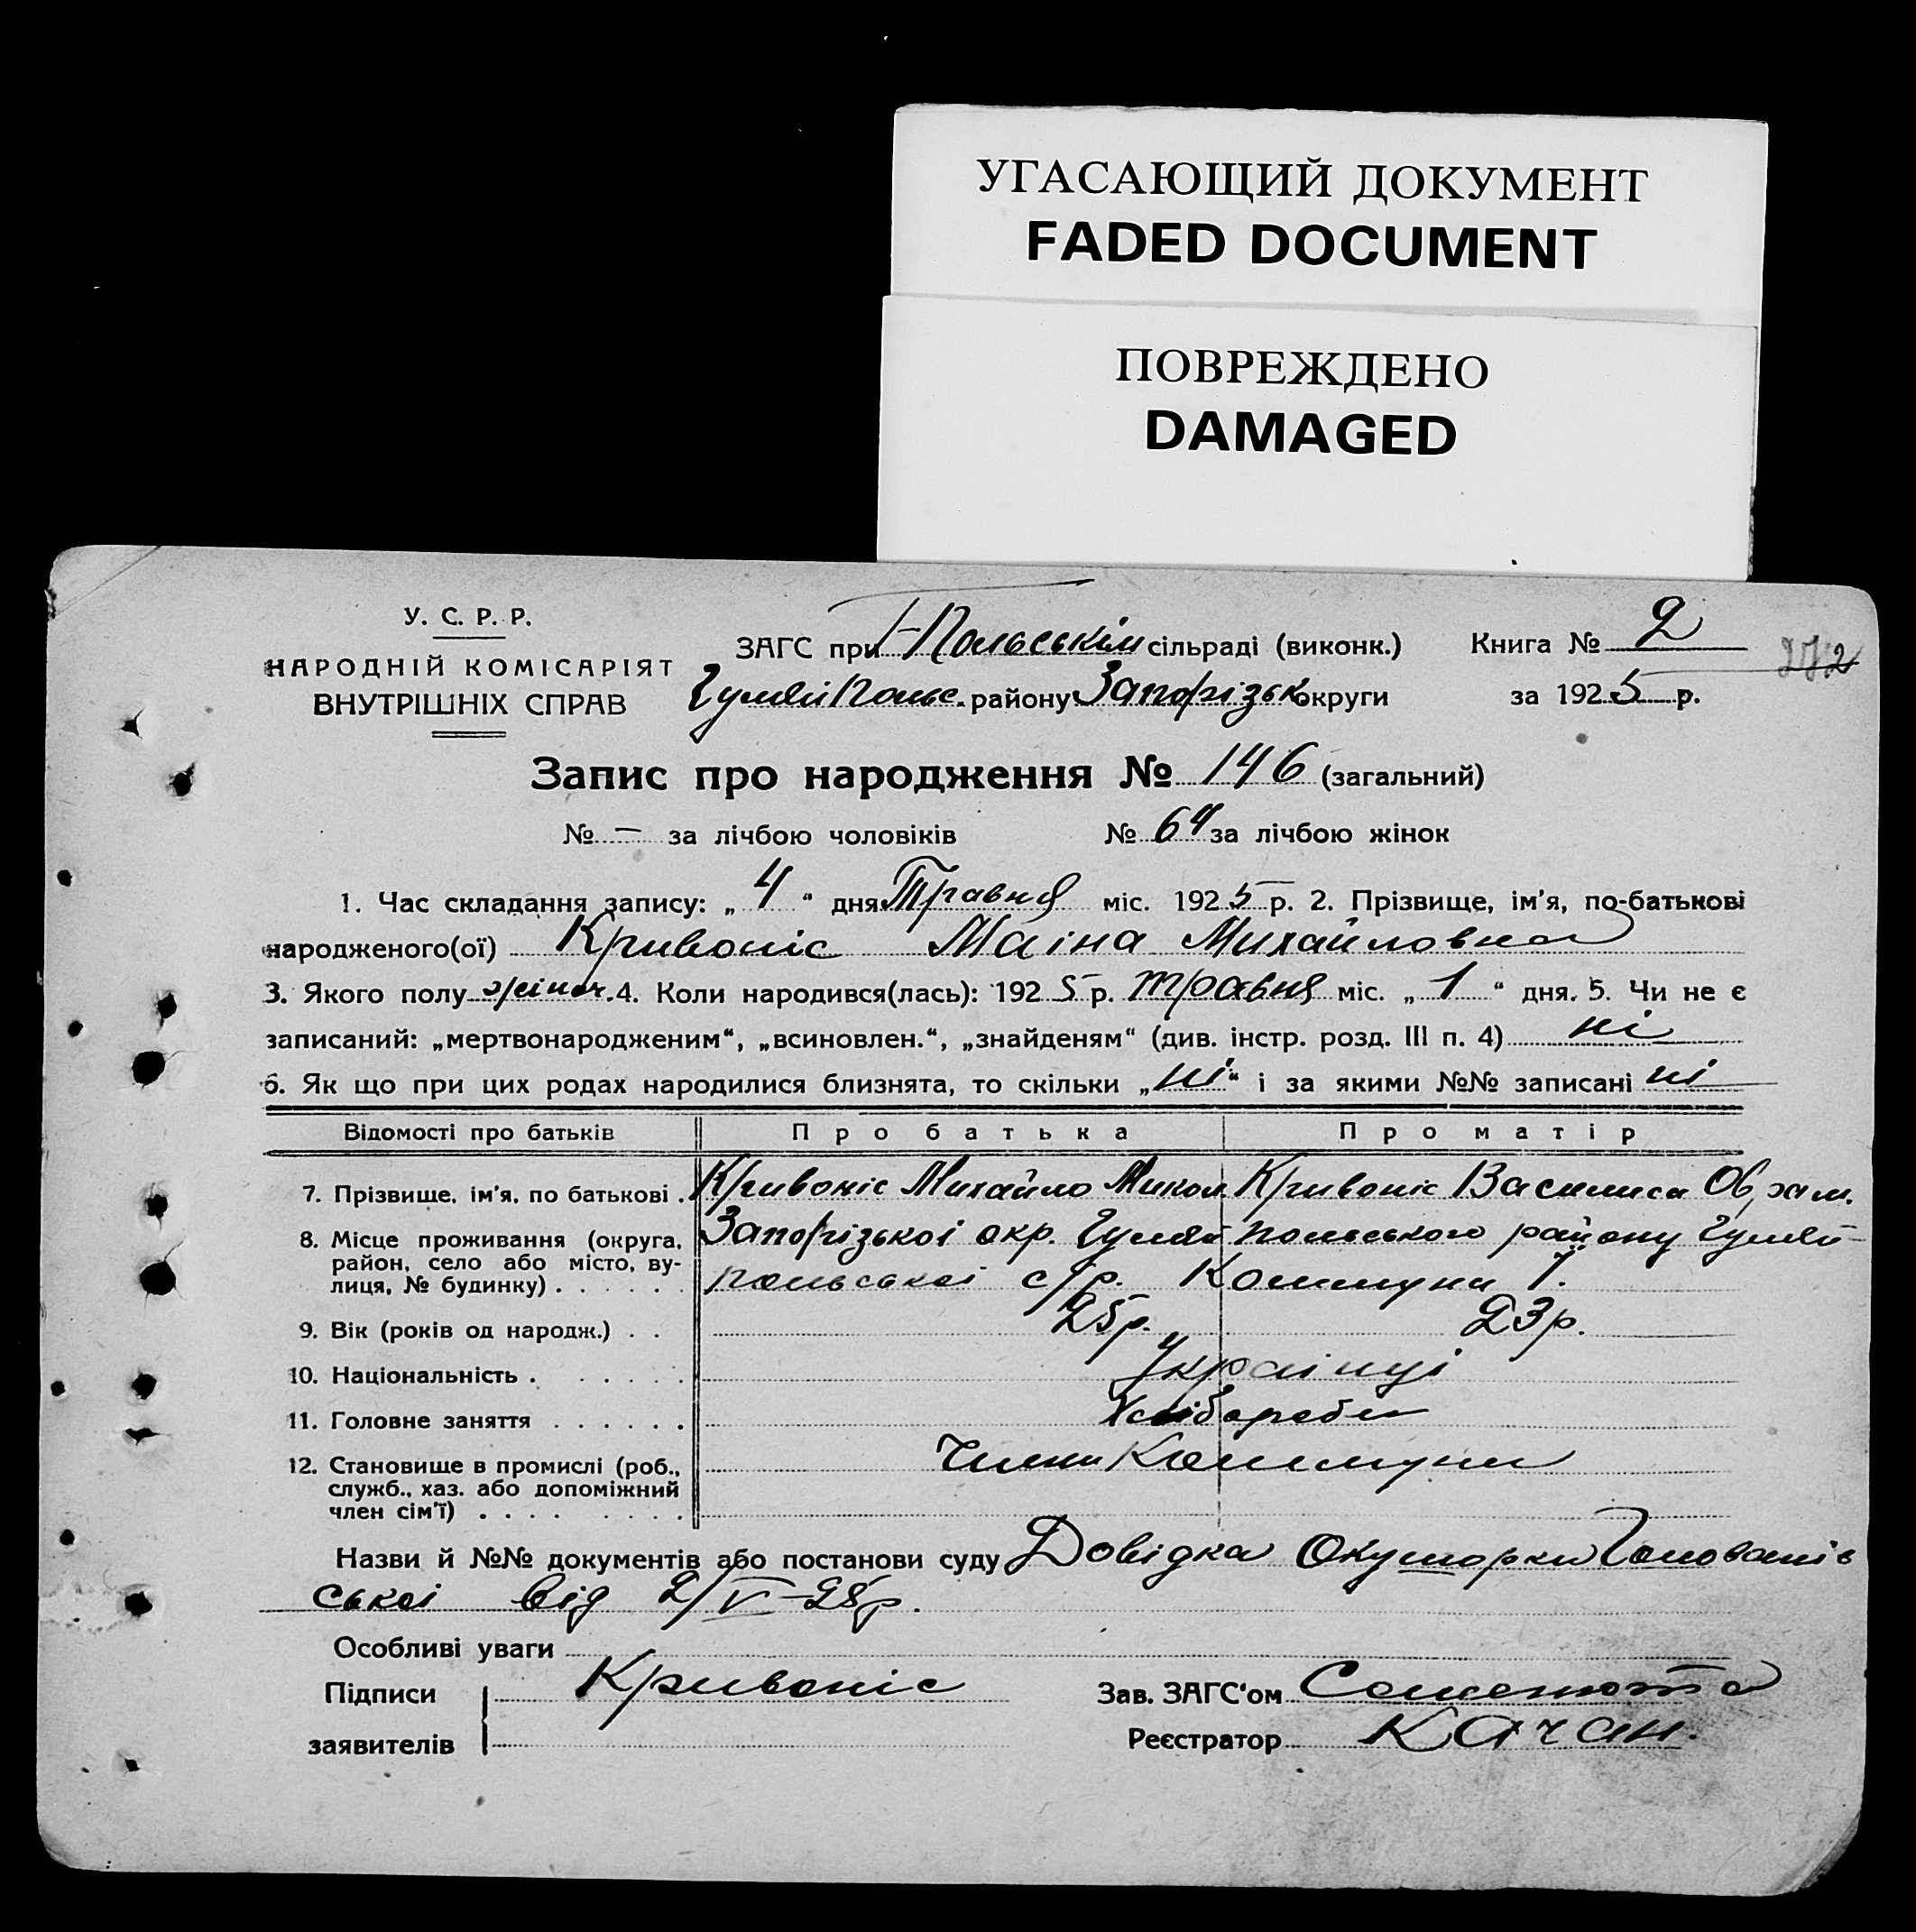 УГАСАЮЩИЙ ДОКУМЕНТ
FADED DOCUMENT
ПОВРЕЖДЕНО
DAMAGED
У. С. Р. Р.
НАРОДНІЙ КОМІСАРІЯТ
ВНУТРІШНІХ СПРАВ
ЗАГС при Г-Польськім сільраді (виконк.)
Гуляйпольс. району Запорізьк округи
Книга № 2
за 1925 р.
Запис про народження № 146 (загальний)
№ — за лічбою чоловіків № 64 за лічбою жінок
1. Час складання запису: „ 4 “ дня Травня міс. 1925 р. 2. Прізвище, ім'я, по-батькові
народженого(ої) Кривоніс Маіна Михайловна
3. Якого полу жіноч. 4. Коли народився(лась): 1925 р. травня міс. „ 1 “ дня. 5. Чи не є
записаний: „мертвонародженим“, „всиновлен.“, „знайденям“ (див. інстр. розд. III п. 4) ні
6. Як що при цих родах народилися близнята, то скільки „ ні “ і за якими №№ записані ні
Відомості про батьків Про батька Про матір
7. Прізвище, ім'я, по батькові . Кривоніс Михайло Микол. Кривоніс Василиса
8. Місце проживання (округа, район, село або місто, вулиця, № будинку) . . . . . . Запорізької окр. Гуляйпольського району Гуляй-
польської с/р. Коммуна
9. Вік (років од народж.) . . 25 р. 23 р.
10. Національність . . . . . . Українці
11. Головне заняття . . . . . . Хлібороби
12. Становище в промислі (роб., служб., хаз. або допоміжний член сім'ї) . . . . . . . . Члени Коммуни
Назви й №№ документів або постанови суду Довідка Окушорки
ської від 2/V-25р.
Особливі уваги
Підписи Кривоніс Зав. ЗАГС'ом
заявителів Реєстратор Качан.